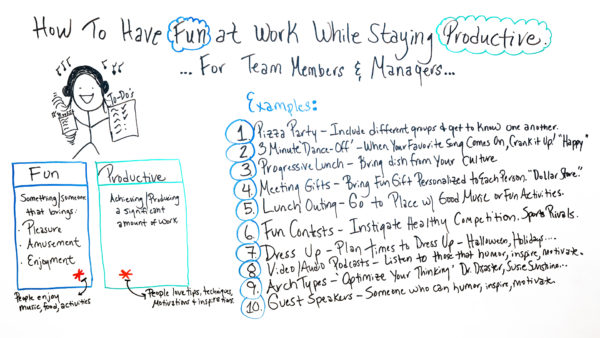 How To Have Fun at Work While Staying Productive.
...For Team Members & Managers...
To-Do's
Examples:
1. Pizza Party - Include different groups & get to know one another.
2. 3 Minute "Dance-Off" - When Your Favorite Song Comes On, Crank it Up! "Happy"
3. Progressive Lunch - Bring dish from Your Culture.
4. Meeting Gifts - Bring Fun Gift Personalized to Each Person. "Dollar Store."
5. Lunch Outing - Go to Place w/ Good Music or Fun Activities.
6. Fun Contests - Instigate Healthy Competition. Sports Rivals.
7. Dress Up - Plan Times to Dress Up - Halloween, Holidays....
8. Video/Audio Podcasts - Listen to those that humor, inspire, motivate.
9. ArchTypes - "Optimize Your Thinking" Dr. Disaster, Susie Sunshine...
10. Guest Speakers - Someone who can humor, inspire, motivate.
Fun
Something/Someone
that brings:
· Pleasure
· Amusement
· Enjoyment
People enjoy
music, food, activities
Productive
Achieving/Producing
a significant
amount of work.
People love tips, techniques,
Motivations & inspirations.